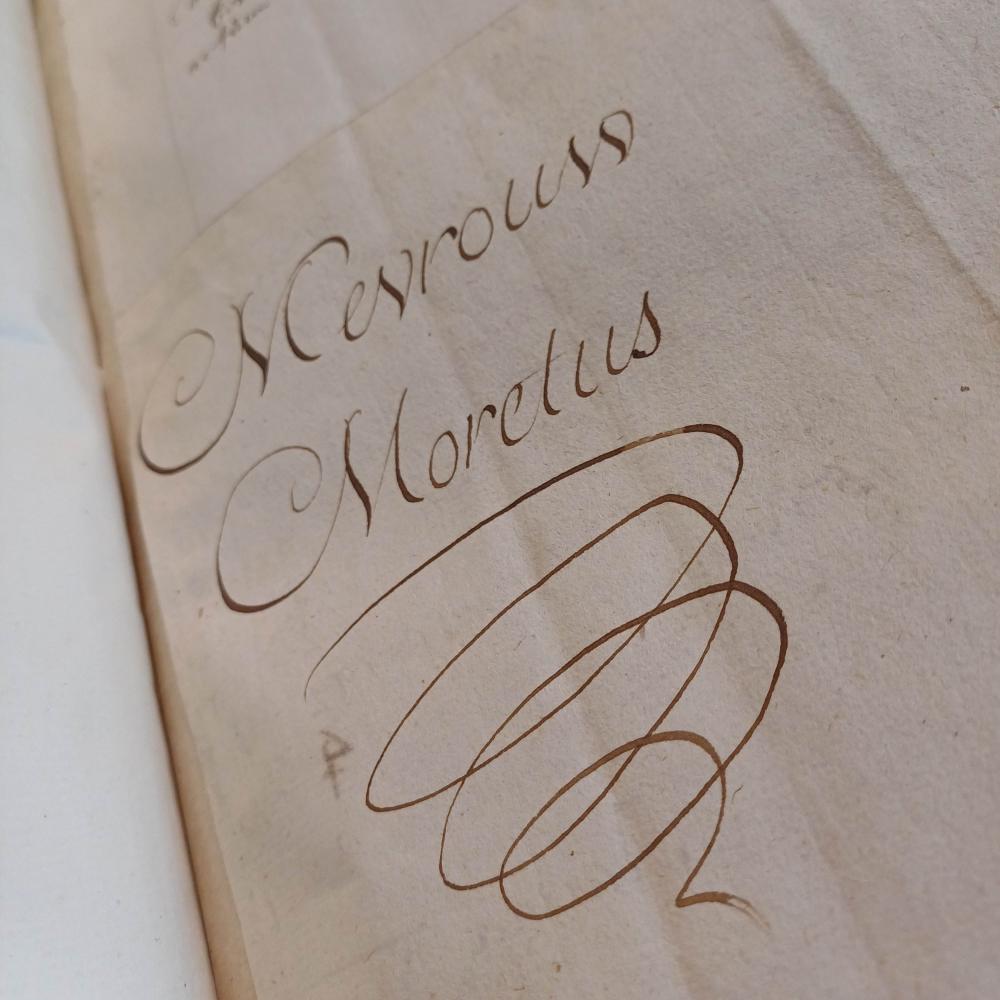 Mevrouw
Moretus
4